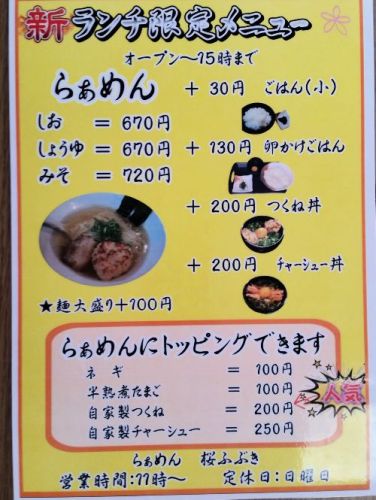 新 ランチ限定メニュー
オープン〜15時まで
らぁめん + 30円 ごはん(小)
しお = 670円
しょうゆ = 670円 + 130円 卵かけごはん
みそ = 720円
+ 200円 つくね丼
+ 200円 チャーシュー丼
★麺大盛り+100円
らぁめんにトッピングできます
ネギ = 100円
半熟煮たまご = 100円
自家製つくね = 200円 人気
自家製チャーシュー = 250円
らぁめん 桜ふぶき
営業時間:11時〜 定休日:日曜日